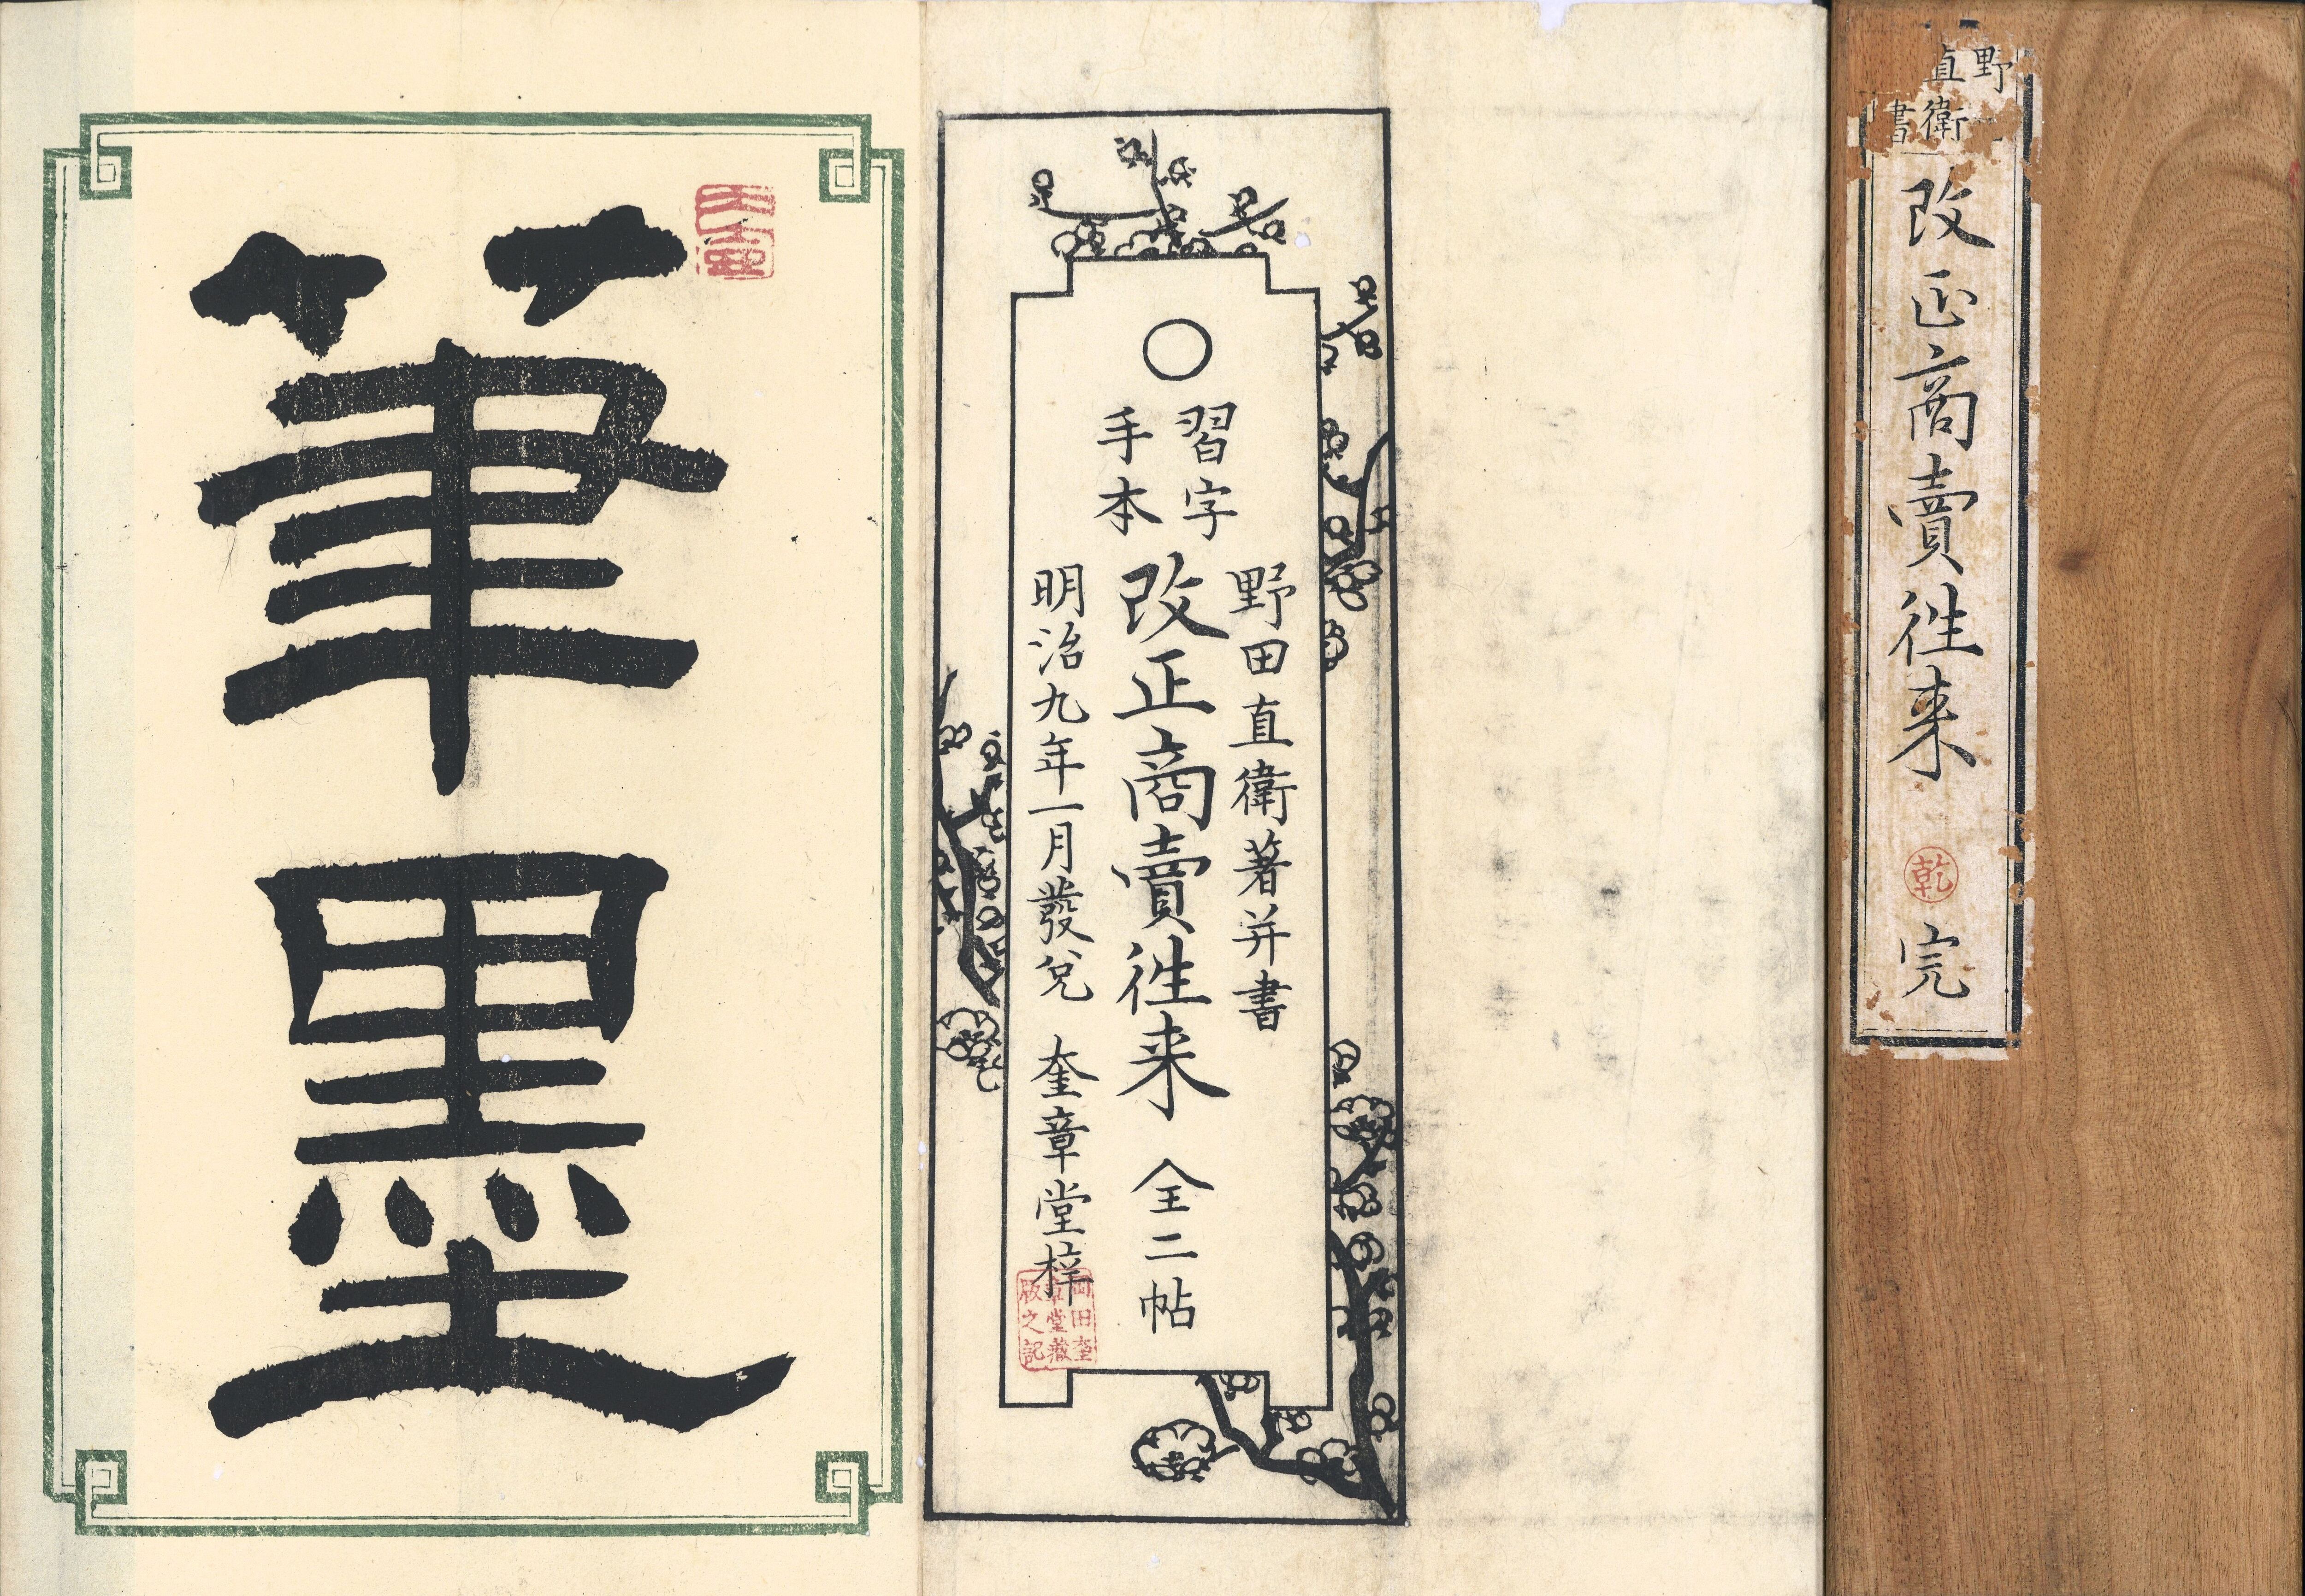 野
直衛
書
改正商賣徃来
乾
完
野田直衛著并書
習字
手本
改正商賣徃来 全二帖
明治九年一月發兌 奎章堂梓
岡田奎
章堂藏
版之記
筆墨